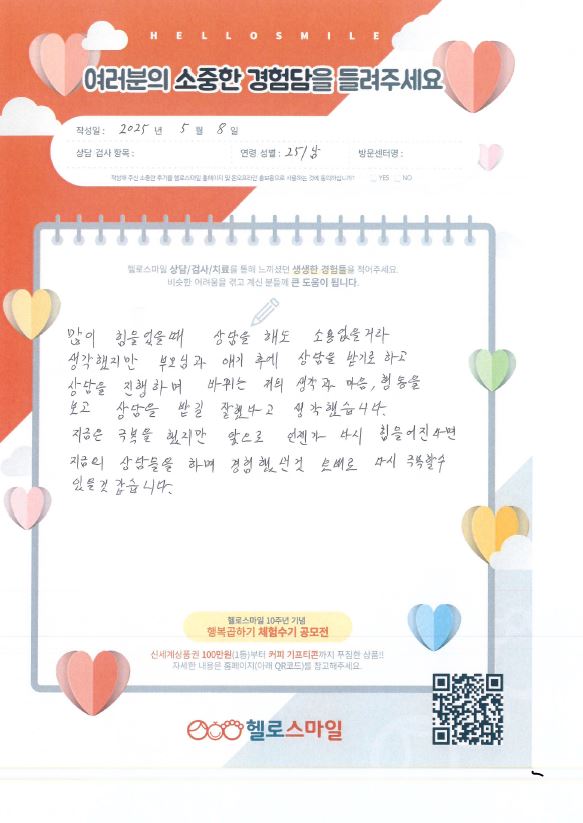 HELLOSMILE
여러분의 소중한 경험담을 들려주세요
작성일 : 2025 년 5 월 8 일
상담 검사 항목 : 연령 성별 : 25/남 방문센터명 :
작성해 주신 소중한 후기를 헬로스마일 홈페이지 및 온오프라인 홍보용으로 사용하는 것에 동의하십니까? YES NO
헬로스마일 상담/검사/치료를 통해 느끼셨던 생생한 경험들을 적어주세요.
비슷한 어려움을 겪고 계신 분들께 큰 도움이 됩니다.
많이 힘들었을때 상담을 해도 소용없을거라
생각했지만 부모님과 얘기 후에 상담을 받기로 하고
상담을 진행하며 바뀌는 저의 생각과 마음, 행동을
보고 상담을 받길 잘했다고 생각했습니다.
지금은 극복을 했지만 앞으로 언젠가 다시 힘들어진다면
지금의 상담들을 하며 경험했던것 토대로 다시 극복할수
있을것 같습니다.
헬로스마일 10주년 기념
행복곱하기 체험수기 공모전
신세계상품권 100만원(1등)부터 커피 기프티콘까지 푸짐한 상품!!
자세한 내용은 홈페이지(아래 QR코드)를 참고해주세요.
헬로스마일